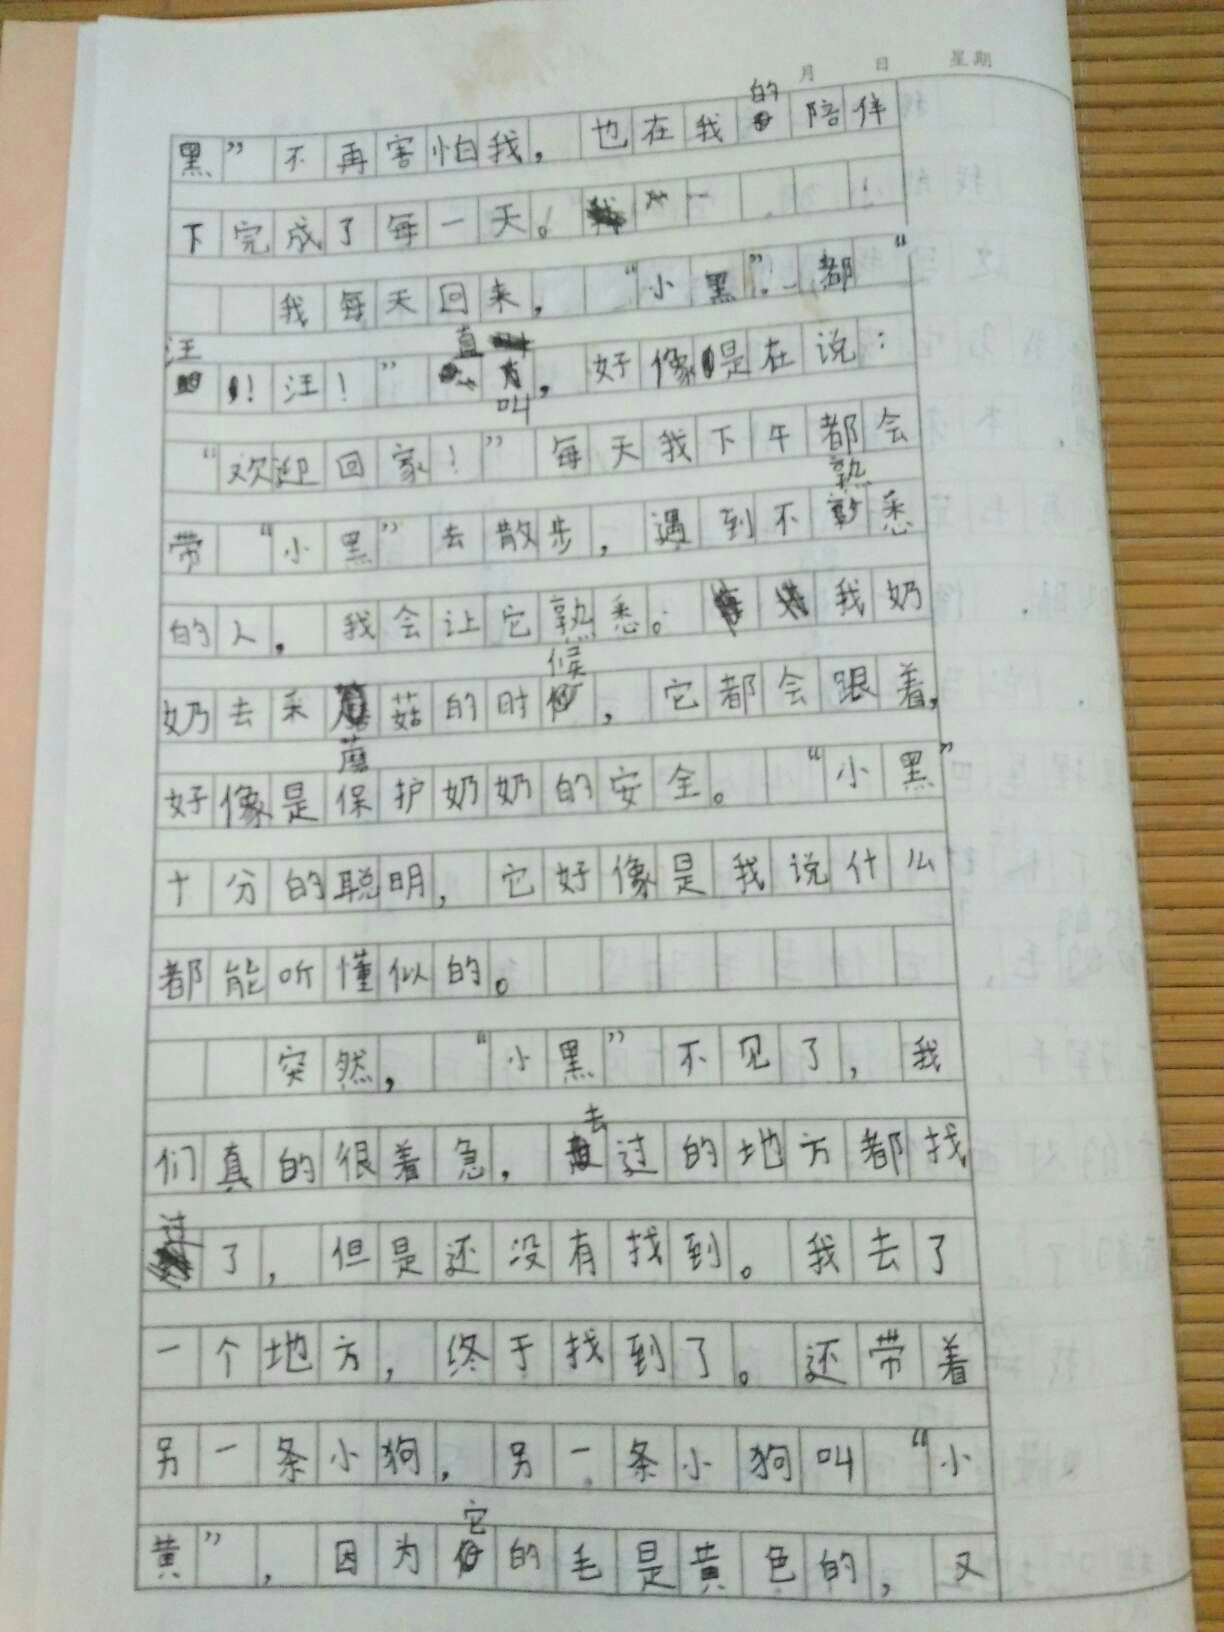 月 日 星期
黑”不再害怕我，也在我的陪伴
下完成了每一天。
我每天回来，“小黑”都“
汪！汪！”直叫，好像是在说：
“欢迎回家！”每天我下午都会
带“小黑”去散步，遇到不熟悉
的人，我会让它熟悉。我奶
奶去采蘑菇的时候，它都会跟着，
好像是保护奶奶的安全。“小黑”
十分的聪明，它好像是我说什么
都能听懂似的。
突然，“小黑”不见了，我
们真的很着急，去过的地方都找
过了，但是还没有找到。我去了
一个地方，终于找到了。还带着
另一条小狗，另一条小狗叫“小
黄”，因为它的毛是黄色的，又